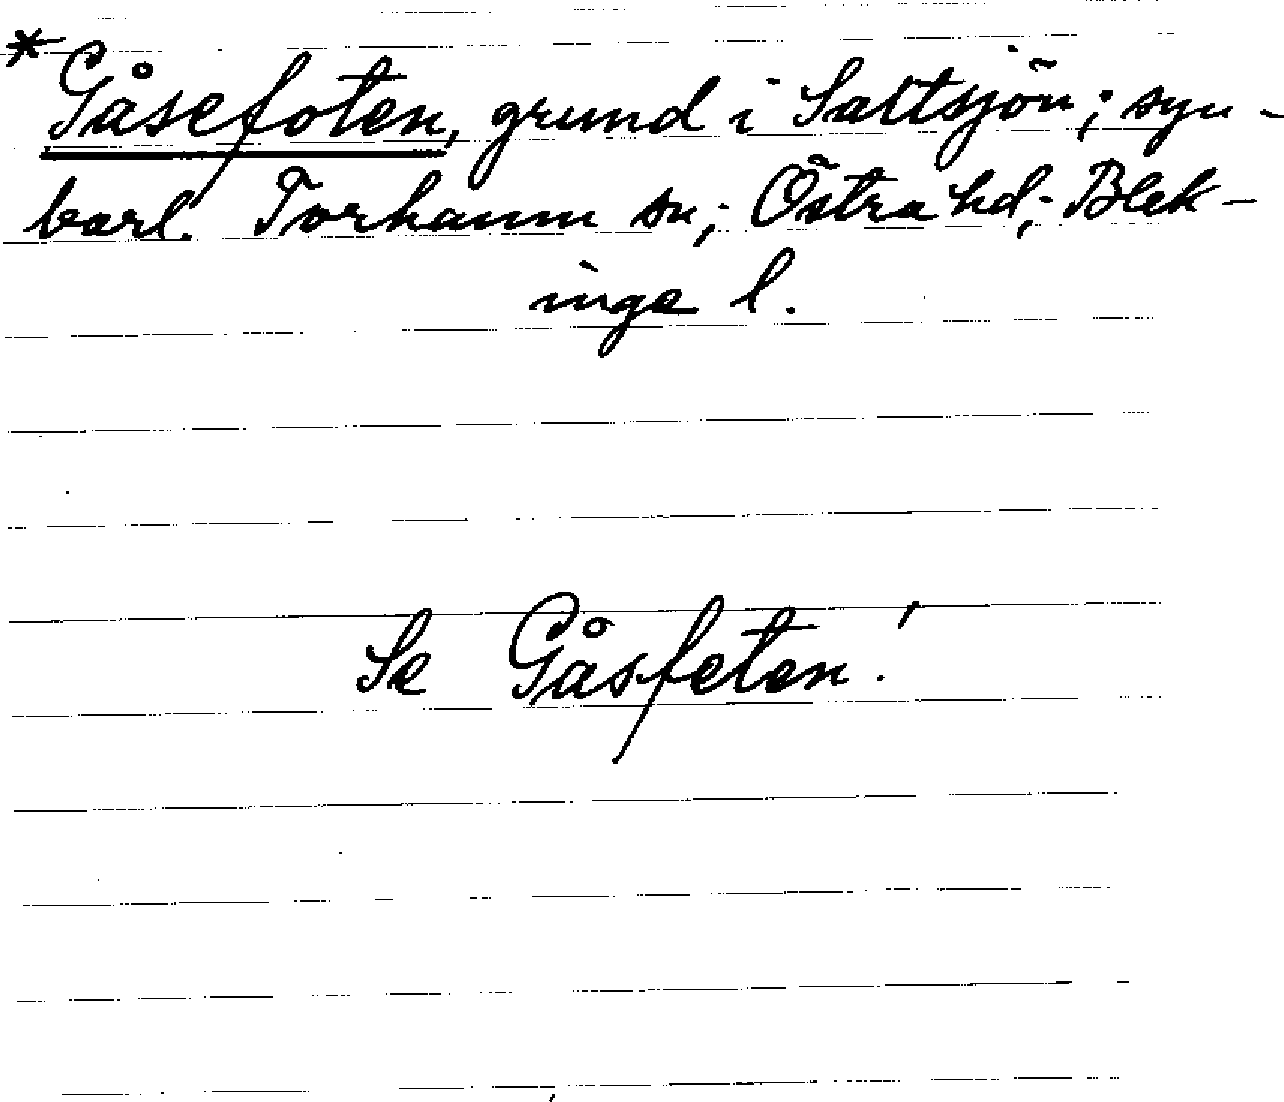 * Gåsefoten, grund i Saltsjön; syn-
barl. Torhamn sn; Östra hd; Blek-
inge l.
Se Gåsfeten!